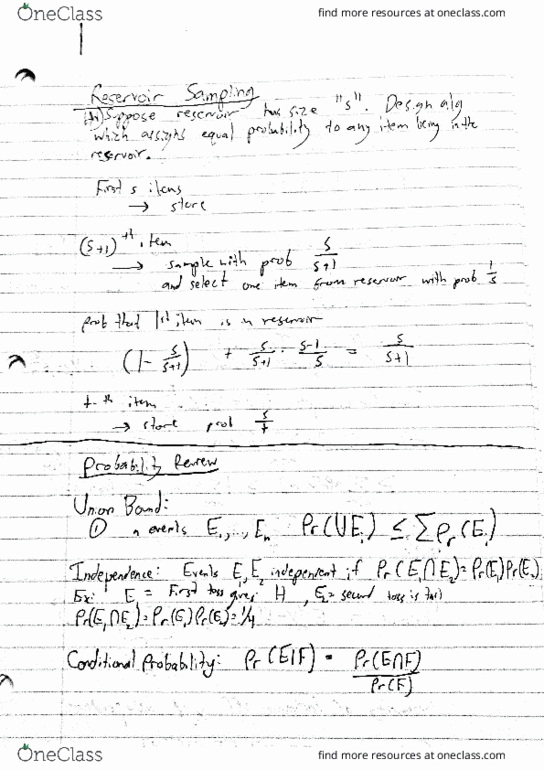 OneClass
find more resources at oneclass.com
Reservoir Sampling
Suppose reservoir has size "s". Design alg
which assigns equal probability to any item being in the
reservoir.
First s items
→ store
(s+1)^th item
→ sample with prob s/(s+1)
and select one item from reservoir with prob 1/s
prob that 1st item is in reservoir
(1 - s/(s+1)) + s/(s+1) · (s-1)/s = s/(s+1)
t-th item
→ store prob s/t
Probability Review
Union Bound:
① n events E₁,..., Eₙ Pr(∪Eᵢ) ≤ ∑Pr(Eᵢ)
Independence: Events E₁,E₂ independent if Pr(E₁∩E₂)=Pr(E₁)Pr(E₂)
Ex: E₁ = First toss gives H, E₂= second toss is tail
Pr(E₁∩E₂)=Pr(E₁)Pr(E₂)=1/4
Conditional Probability: Pr(E|F) = Pr(E∩F)/Pr(F)
OneClass
find more resources at oneclass.com